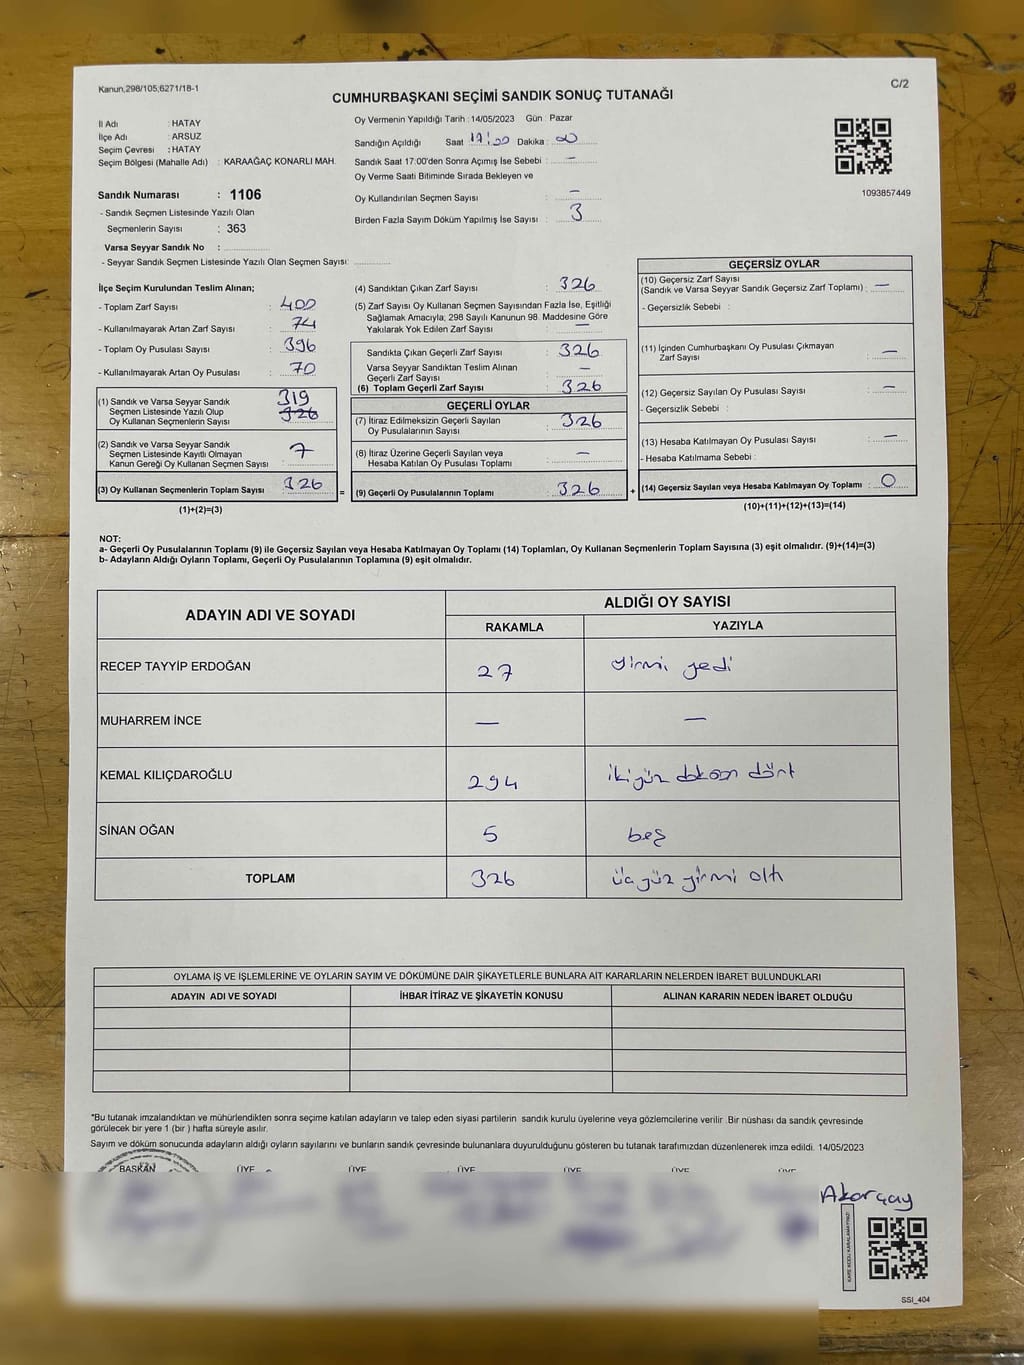 Kanun,298/105;6271/18-1
C/2
CUMHURBAŞKANI SEÇİMİ SANDIK SONUÇ TUTANAĞI
İl Adı : HATAY
İlçe Adı : ARSUZ
Seçim Çevresi : HATAY
Seçim Bölgesi (Mahalle Adı) : KARAAĞAÇ KONARLI MAH.
Sandık Numarası : 1106
- Sandık Seçmen Listesinde Yazılı Olan
Seçmenlerin Sayısı : 363
Varsa Seyyar Sandık No :
- Seyyar Sandık Seçmen Listesinde Yazılı Olan Seçmen Sayısı:
Oy Vermenin Yapıldığı Tarih : 14/05/2023 Gün : Pazar
Sandığın Açıldığı Saat Dakika : 00
Sandık Saat 17:00'den Sonra Açımış İse Sebebi : —
Oy Verme Saati Bitiminde Sırada Bekleyen ve
Oy Kullandırılan Seçmen Sayısı : —
Birden Fazla Sayım Döküm Yapılmış İse Sayısı : 3
1093857449
İlçe Seçim Kurulundan Teslim Alınan;
- Toplam Zarf Sayısı : 400
- Kullanılmayarak Artan Zarf Sayısı : 74
- Toplam Oy Pusulası Sayısı : 396
- Kullanılmayarak Artan Oy Pusulası : 70
(1) Sandık ve Varsa Seyyar Sandık 319
Seçmen Listesinde Yazılı Olup 326
Oy Kullanan Seçmenlerin Sayısı
(2) Sandık ve Varsa Seyyar Sandık
Seçmen Listesinde Kayıtlı Olmayan : 7
Kanun Gereği Oy Kullanan Seçmen Sayısı
(3) Oy Kullanan Seçmenlerin Toplam Sayısı : 326
(1)+(2)=(3)
(4) Sandıktan Çıkan Zarf Sayısı : 326
(5) Zarf Sayısı Oy Kullanan Seçmen Sayısından Fazla İse, Eşitliği
Sağlamak Amacıyla; 298 Sayılı Kanunun 98. Maddesine Göre
Yakılarak Yok Edilen Zarf Sayısı : —
Sandıkta Çıkan Geçerli Zarf Sayısı : 326
Varsa Seyyar Sandıktan Teslim Alınan
Geçerli Zarf Sayısı : —
(6) Toplam Geçerli Zarf Sayısı : 326
GEÇERLİ OYLAR
(7) İtiraz Edilmeksizin Geçerli Sayılan
Oy Pusulalarının Sayısı : 326
(8) İtiraz Üzerine Geçerli Sayılan veya
Hesaba Katılan Oy Pusulası Toplamı : —
= (9) Geçerli Oy Pusulalarının Toplamı : 326
GEÇERSİZ OYLAR
(10) Geçersiz Zarf Sayısı
(Sandık ve Varsa Seyyar Sandık Geçersiz Zarf Toplamı) : —
- Geçersizlik Sebebi :
(11) İçinden Cumhurbaşkanı Oy Pusulası Çıkmayan
Zarf Sayısı : —
(12) Geçersiz Sayılan Oy Pusulası Sayısı : —
- Geçersizlik Sebebi :
(13) Hesaba Katılmayan Oy Pusulası Sayısı : —
- Hesaba Katılmama Sebebi :
+ (14) Geçersiz Sayılan veya Hesaba Katılmayan Oy Toplamı : 0
(10)+(11)+(12)+(13)=(14)
NOT:
a- Geçerli Oy Pusulalarının Toplamı (9) ile Geçersiz Sayılan veya Hesaba Katılmayan Oy Toplamı (14) Toplamları, Oy Kullanan Seçmenlerin Toplam Sayısına (3) eşit olmalıdır. (9)+(14)=(3)
b- Adayların Aldığı Oyların Toplamı, Geçerli Oy Pusulalarının Toplamına (9) eşit olmalıdır.
ADAYIN ADI VE SOYADI
ALDIĞI OY SAYISI
RAKAMLA YAZIYLA
RECEP TAYYİP ERDOĞAN 27 yirmi yedi
MUHARREM İNCE — —
KEMAL KILIÇDAROĞLU 294 ikiyüz doksan dört
SİNAN OĞAN 5 beş
TOPLAM 326 üç yüz yirmi altı
OYLAMA İŞ VE İŞLEMLERİNE VE OYLARIN SAYIM VE DÖKÜMÜNE DAİR ŞİKAYETLERLE BUNLARA AİT KARARLARIN NELERDEN İBARET BULUNDUKLARI
ADAYIN ADI VE SOYADI İHBAR İTİRAZ VE ŞİKAYETİN KONUSU ALINAN KARARIN NEDEN İBARET OLDUĞU
*Bu tutanak imzalandıktan ve mühürlendikten sonra seçime katılan adayların ve talep eden siyasi partilerin sandık kurulu üyelerine veya gözlemcilerine verilir .Bir nüshası da sandık çevresinde
görülecek bir yere 1 (bir ) hafta süreyle asılır.
Sayım ve döküm sonucunda adayların aldığı oyların sayılarını ve bunların sandık çevresinde bulunanlara duyurulduğunu gösteren bu tutanak tarafımızdan düzenlenerek imza edildi. 14/05/2023
BAŞKAN ÜYE ÜYE ÜYE ÜYE ÜYE ÜYE
Akarçay
KARE KODU KARALAMAYINIZ!
SSI_404